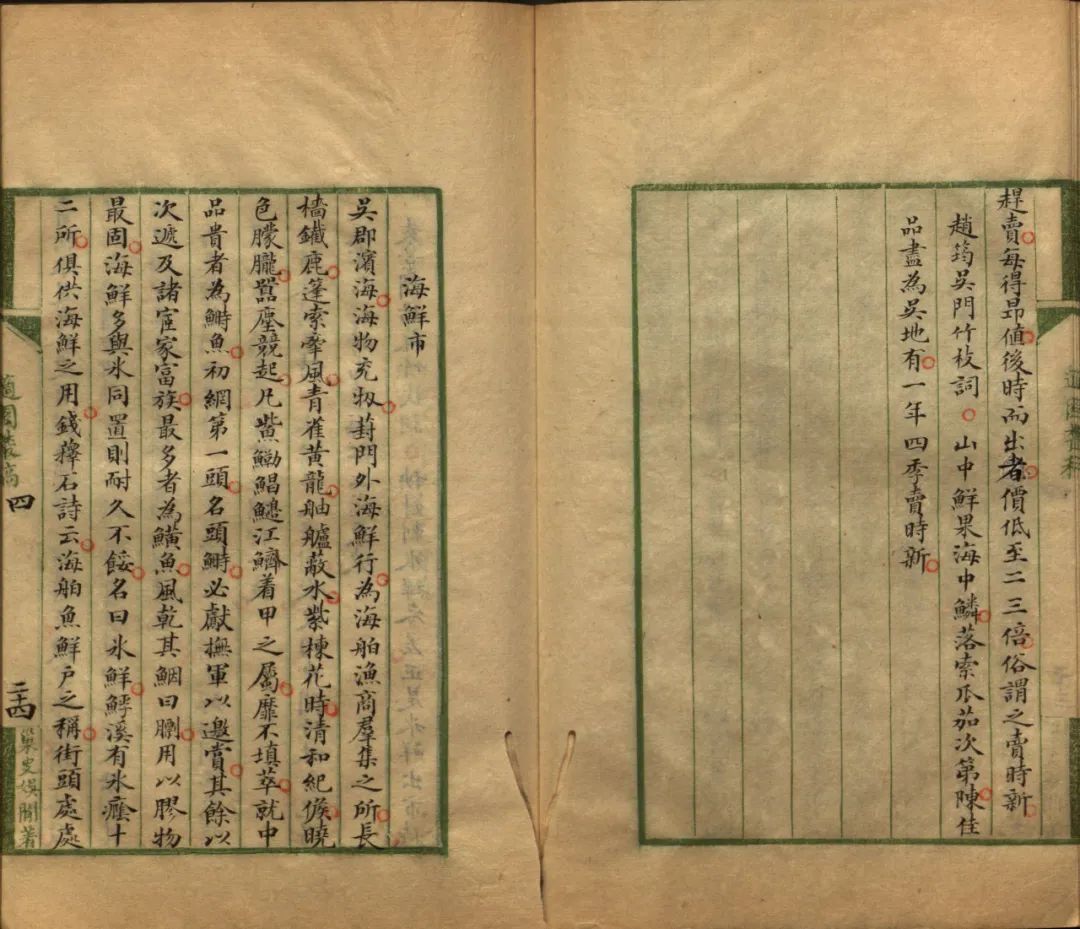 趕賣每得昂值後時而出者價低至二三倍俗謂之賣時新
趙筠吳門竹枝詞山中鮮果海中鱗落索瓜茄次第陳佳
品盡為吳地有一年四季賣時新
海鮮市
吳郡濱海海物充牣葑門外海鮮行為海舶漁商羣集之所長
檣鐵鹿篷索牽風青雀黃龍舳艫蔽水紫楝花時清和紀候曉
色朦朧囂塵競起凡鮆鰳鯧鱁江鱭着甲之屬靡不填萃就中
品貴者為鰣魚初網第一頭名頭鰣必獻撫軍以邀賞其餘以
次遞及諸宦家富族最多者為鱑魚風乾其鮂曰用以膠物
最固海鮮多與氷同置則耐久不餒名曰氷鮮鱘溪有氷廕十
二所俱供海鮮之用錢籜石詩云海舶魚鮮戶之稱街頭處處
適園叢稿
四
二十四
巢叟娛閒著